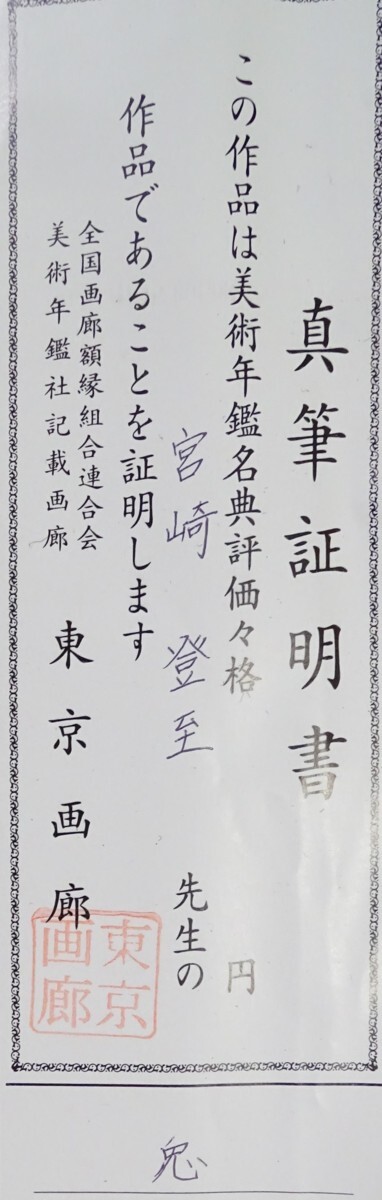 真筆証明書
この作品は美術年鑑名典評価々格 円
宮崎 登至 先生の
作品であることを証明します
全国画廊額縁組合連合会
美術年鑑社記載画廊
東京画廊
東京画廊